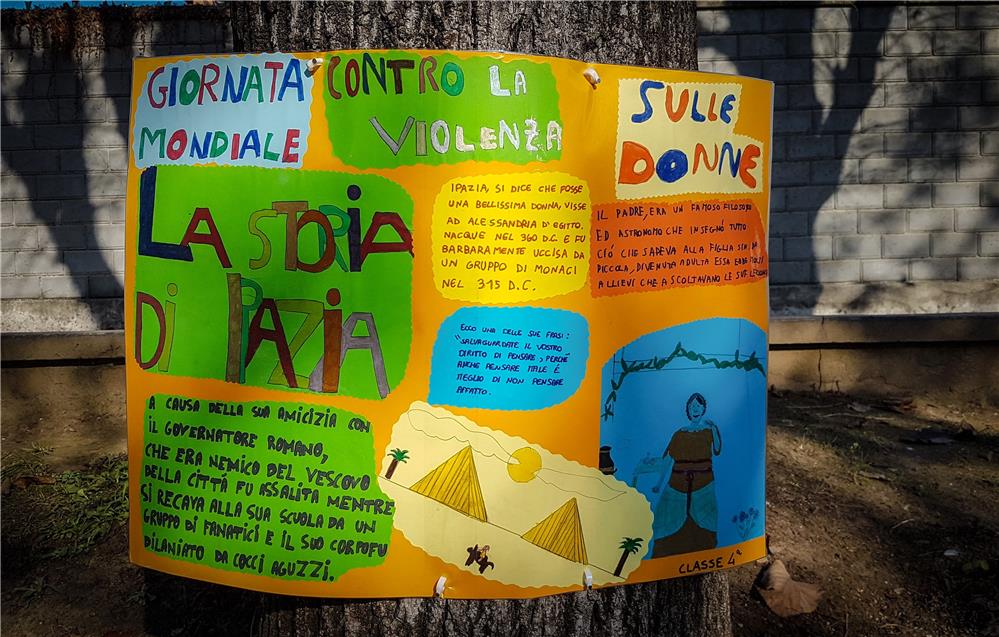 GIORNATA
MONDIALE
CONTRO LA
VIOLENZA
SULLE
DONNE
LA STORIA
DI IPAZIA
IPAZIA, SI DICE CHE FOSSE
UNA BELLISSIMA DONNA, VISSE
AD ALESSANDRIA D'EGITTO.
NACQUE NEL 360 D.C. E FU
BARBARAMENTE UCCISA DA
UN GRUPPO DI MONACI
NEL 315 D.C.
IL PADRE, ERA UN FAMOSO FILOSOFO
ED ASTRONOMO CHE INSEGNÓ TUTTO
CIÓ CHE SAPEVA ALLA FIGLIA SIN DA
PICCOLA, DIVENUTA ADULTA ESSA EBBE
ALLIEVI CHE ASCOLTAVANO LE SUE LEZIONI
ECCO UNA DELLE SUE FRASI:
"SALVAGUARDATE IL VOSTRO
DIRITTO DI PENSARE, PERCHÉ
ANCHE PENSARE MALE É
MEGLIO DI NON PENSARE
AFFATTO.
A CAUSA DELLA SUA AMICIZIA CON
IL GOVERNATORE ROMANO,
CHE ERA NEMICO DEL VESCOVO
DELLA CITTÁ FU ASSALITA MENTRE
SI RECAVA ALLA SUA SCUOLA DA UN
GRUPPO DI FANATICI E IL SUO CORPO FU
DILANIATO DA COCCI AGUZZI.
CLASSE 4ª